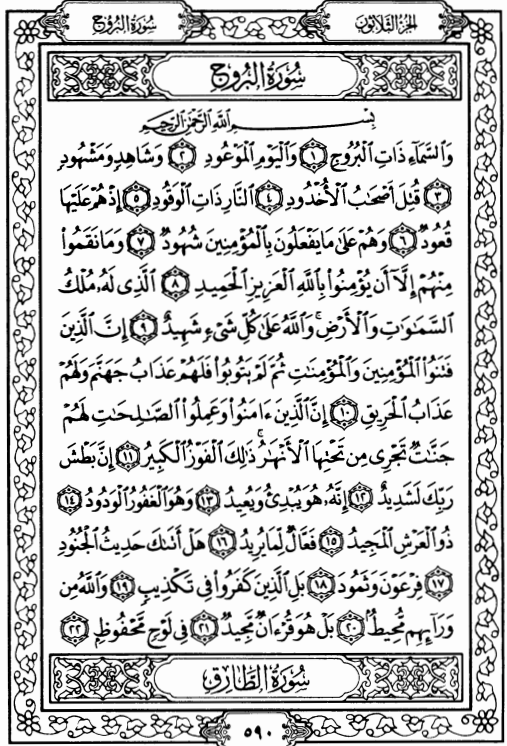 الجزء الثلاثون
سورة البروج
سُورَةُ البُرُوجِ
بِسْمِ اللَّهِ الرَّحْمَٰنِ الرَّحِيمِ
وَالسَّمَاءِ ذَاتِ الْبُرُوجِ ١ وَالْيَوْمِ الْمَوْعُودِ ٢ وَشَاهِدٍ وَمَشْهُودٍ
٣ قُتِلَ أَصْحَابُ الْأُخْدُودِ ٤ النَّارِ ذَاتِ الْوَقُودِ ٥ إِذْ هُمْ عَلَيْهَا
قُعُودٌ ٦ وَهُمْ عَلَىٰ مَا يَفْعَلُونَ بِالْمُؤْمِنِينَ شُهُودٌ ٧ وَمَا نَقَمُوا
مِنْهُمْ إِلَّا أَن يُؤْمِنُوا بِاللَّهِ الْعَزِيزِ الْحَمِيدِ ٨ الَّذِي لَهُ مُلْكُ
السَّمَاوَاتِ وَالْأَرْضِ ۚ وَاللَّهُ عَلَىٰ كُلِّ شَيْءٍ شَهِيدٌ ٩ إِنَّ الَّذِينَ
فَتَنُوا الْمُؤْمِنِينَ وَالْمُؤْمِنَاتِ ثُمَّ لَمْ يَتُوبُوا فَلَهُمْ عَذَابُ جَهَنَّمَ وَلَهُمْ
عَذَابُ الْحَرِيقِ ١٠ إِنَّ الَّذِينَ ءَامَنُوا وَعَمِلُوا الصَّالِحَاتِ لَهُمْ
جَنَّاتٌ تَجْرِي مِن تَحْتِهَا الْأَنْهَارُ ۚ ذَٰلِكَ الْفَوْزُ الْكَبِيرُ ١١ إِنَّ بَطْشَ
رَبِّكَ لَشَدِيدٌ ١٢ إِنَّهُ هُوَ يُبْدِئُ وَيُعِيدُ ١٣ وَهُوَ الْغَفُورُ الْوَدُودُ ١٤
ذُو الْعَرْشِ الْمَجِيدُ ١٥ فَعَّالٌ لِّمَا يُرِيدُ ١٦ هَلْ أَتَاكَ حَدِيثُ الْجُنُودِ
١٧ فِرْعَوْنَ وَثَمُودَ ١٨ بَلِ الَّذِينَ كَفَرُوا فِي تَكْذِيبٍ ١٩ وَاللَّهُ مِن
وَرَائِهِم مُّحِيطٌ ٢٠ بَلْ هُوَ قُرْءَانٌ مَّجِيدٌ ٢١ فِي لَوْحٍ مَّحْفُوظٍ ٢٢
سُورَةُ الطَّارِقِ
٥٩٠